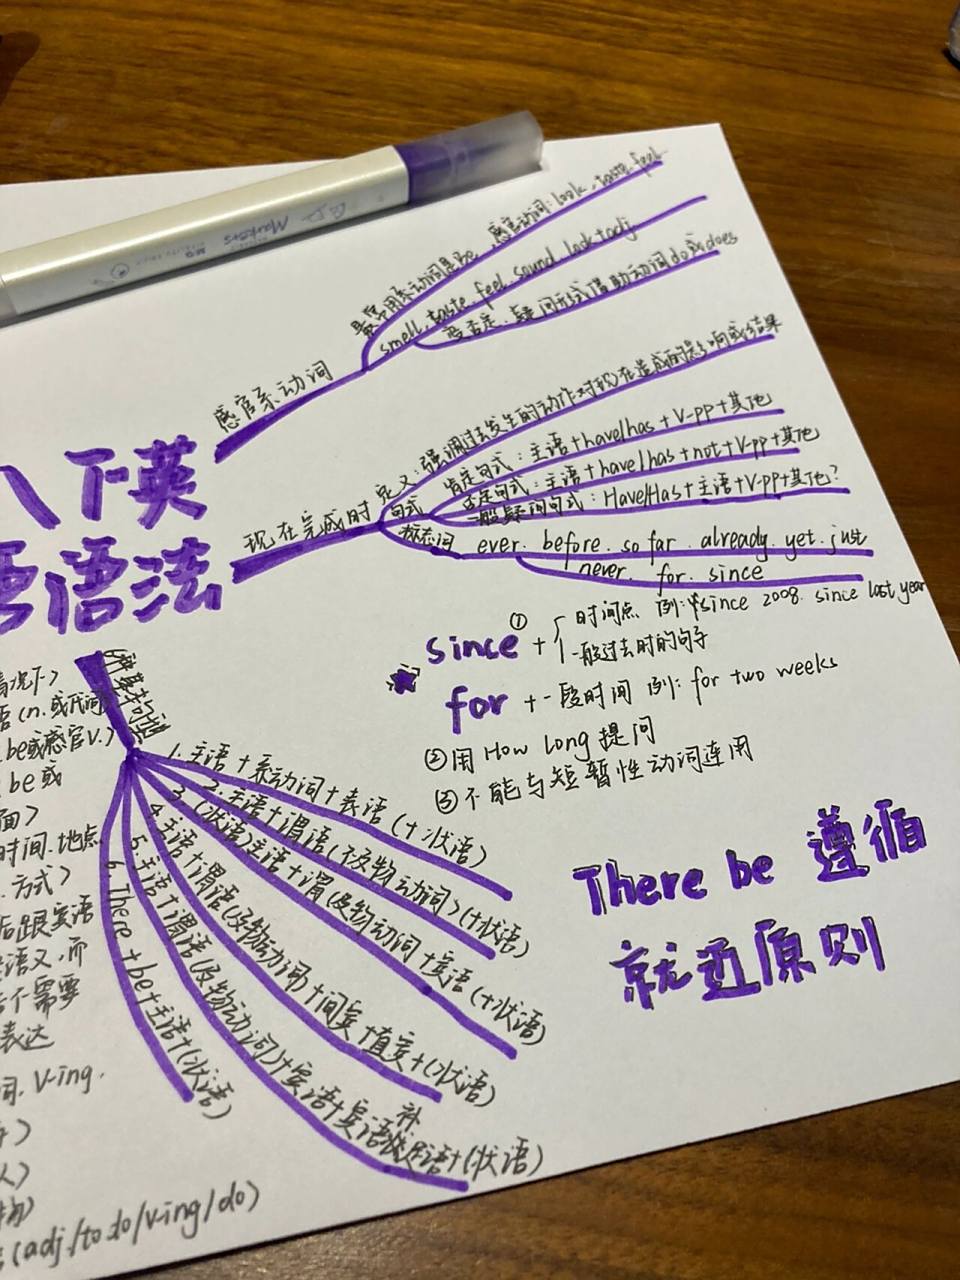 Markers
八下英
语语法
感官系动词
最常用系动词是be 感官动词: look, taste, feel
smell, taste, feel, sound, look+adj
变否定、疑问形式借助动词do或does
现在完成时
定义:强调过去发生的动作对现在造成的影响或结果
句式
肯定句式:主语+have/has+V-pp+其他
否定句式:主语+have/has+not+V-pp+其他
一般疑问句式:Have/Has+主语+V-pp+其他?
标志词
ever. before. so far. already. yet. just
never. for. since
① since + 时间点 例: since 2008. since last year
一般过去时的句子
for +一段时间 例: for two weeks
②用 How long 提问
③不能与短暂性动词连用
There be 遵循
就近原则
1. 主语+系动词+表语(+状语)
2. 主语+谓语(不及物动词)(+状语)
3. (状语)主语+谓(及物动词+宾语(+状语)
4. 主语+谓语(及物动词)+间宾+直宾+(状语)
5. 主语+谓语(及物动词)+宾语+宾语补足语+(状语)
6. There +be+主语+(状语)
情况下)
语(n.或代词
be或感官v.)
be或
面)
时间.地点
.方式)
后跟宾语
语义,而
不需要
表达
词. V-ing.
人)
物)
(adj/to do/v-ing/do)